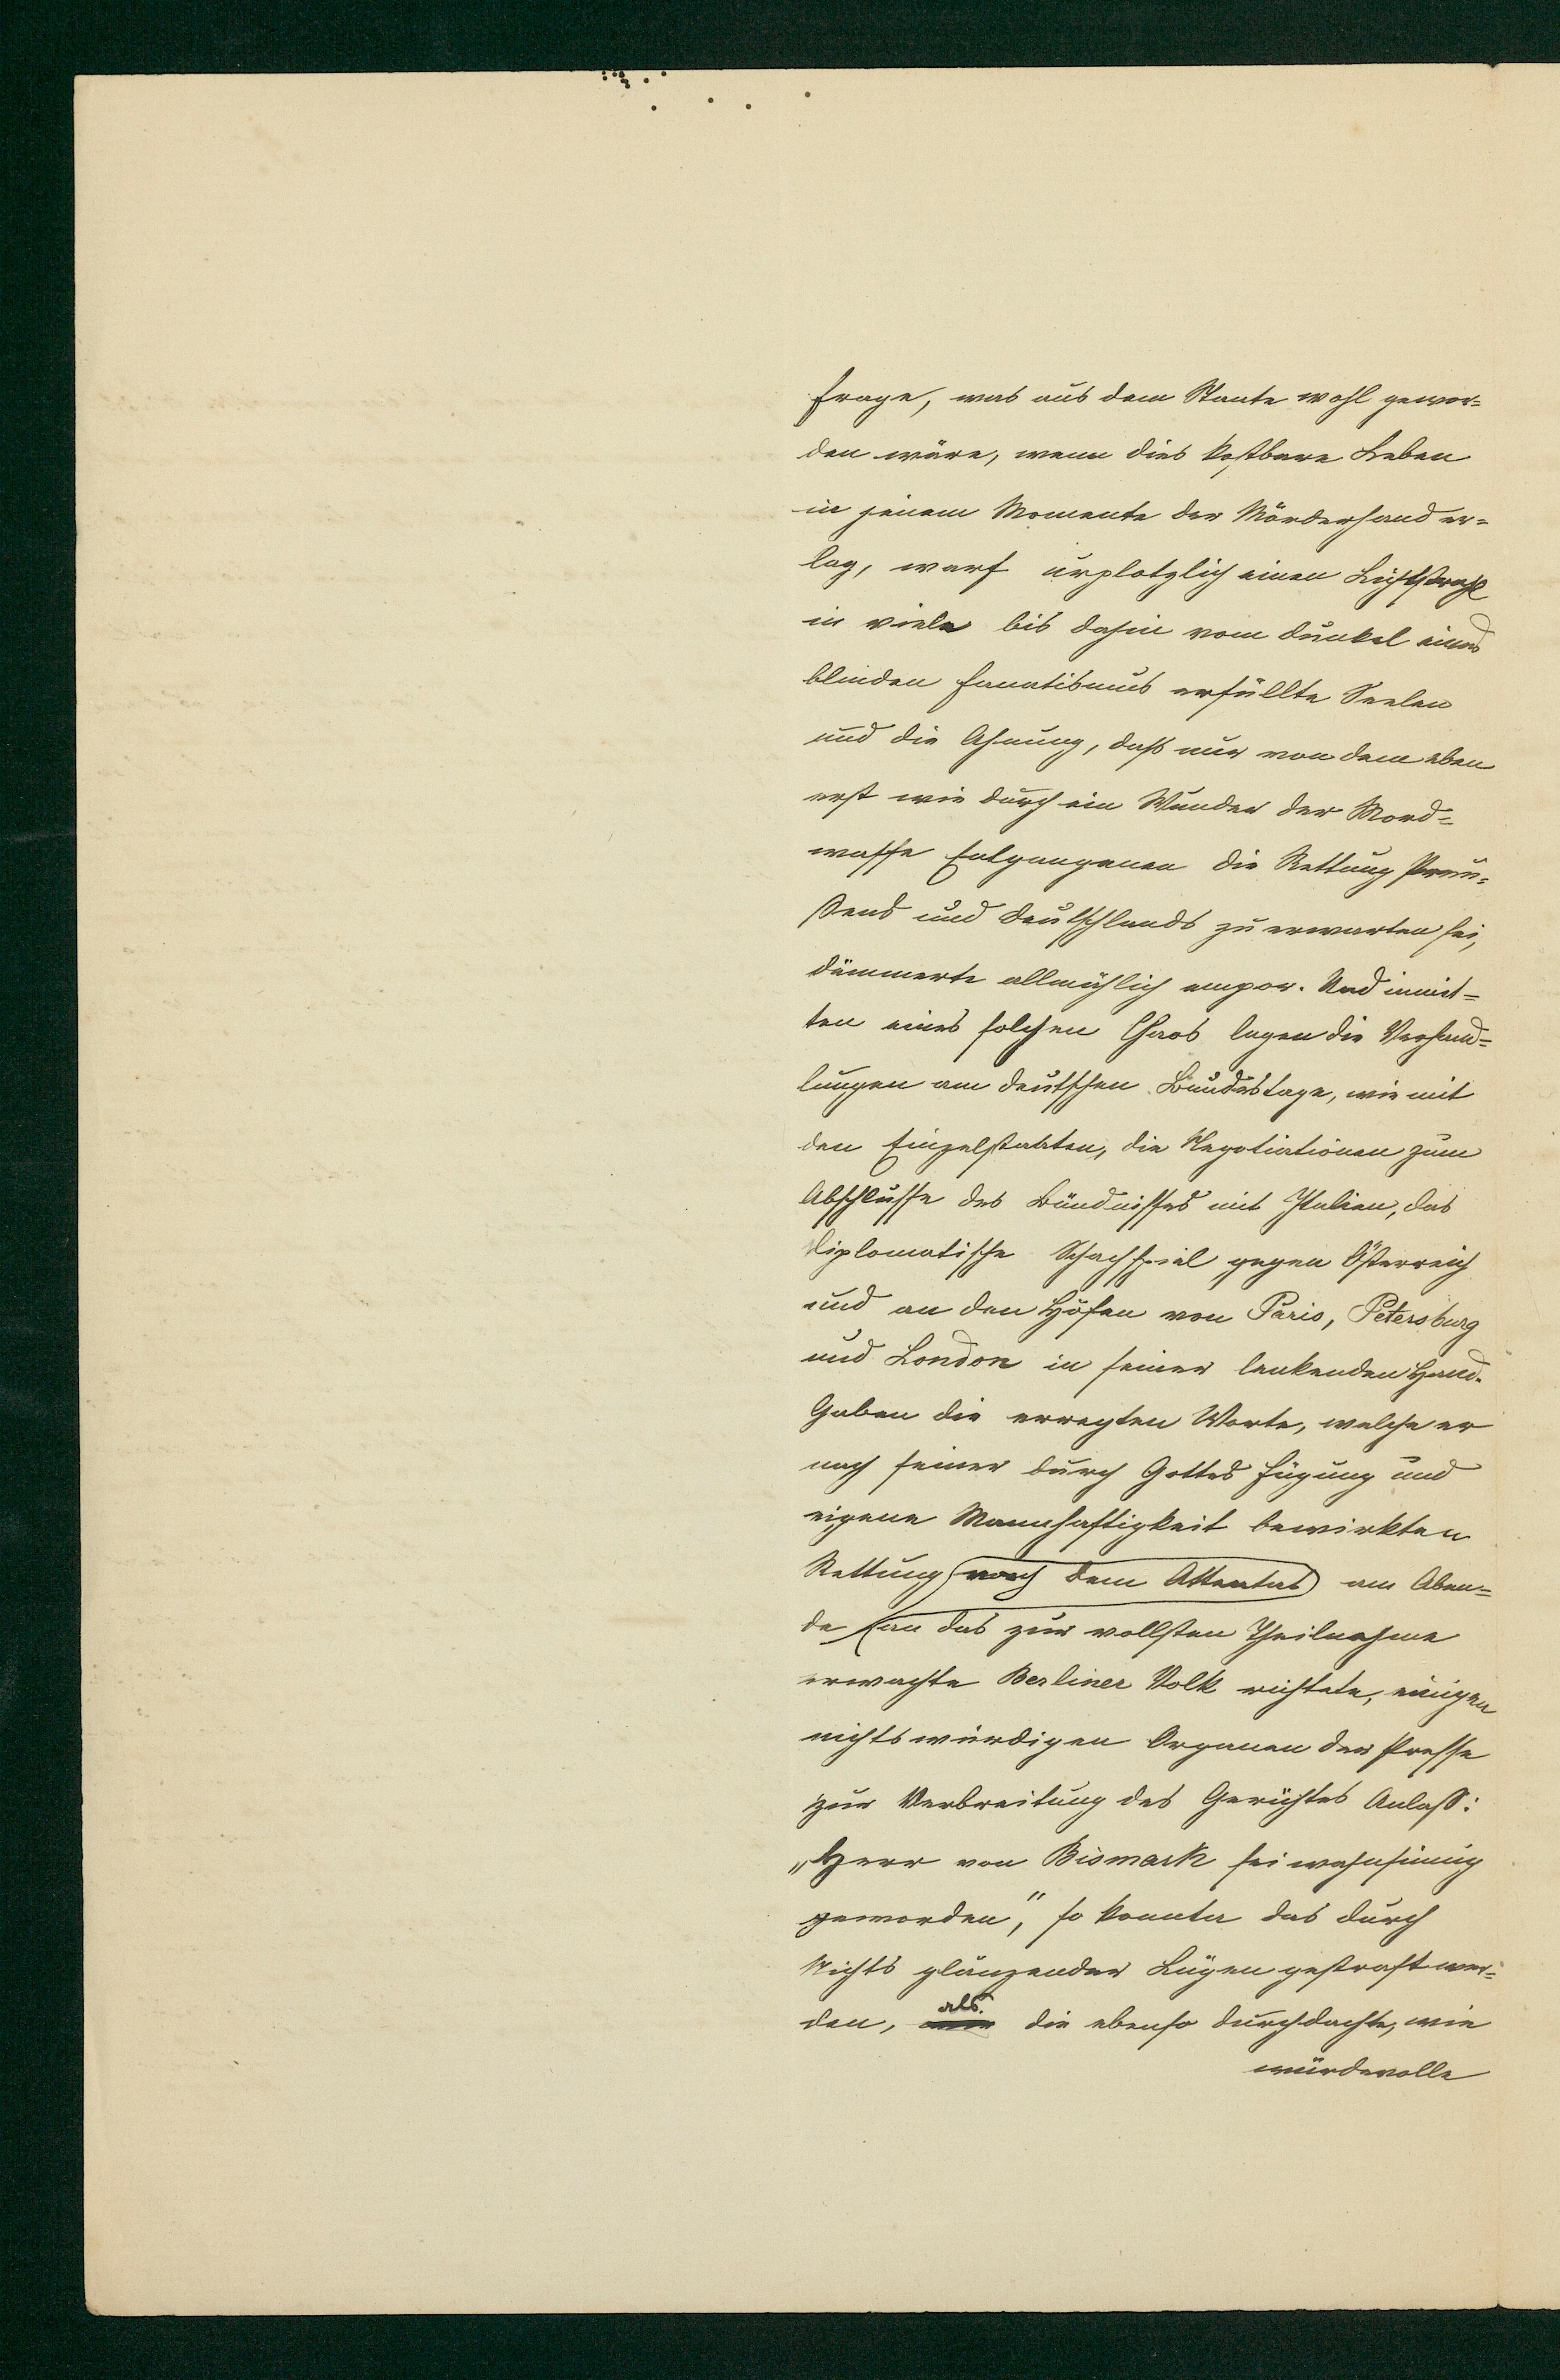 Frage, was aus dem Staate wohl gewor=
den wäre, wenn dies kostbare Leben
in jenem Momente der Mörderhand er=
lag, warf urplotzlich einen Lichtstrahl
in viele bis dahin vom Dunkel eines
blinden Fanatismus erfüllte Seelen
und die Ahnung, daß nur von dem eben
erst wie durch ein Wunder der Mord=
waffe Entgangenen die Rettung Preu=
ßens und Deutschlands zu erwarten sei,
dämmerte allmählich empor. Und inmit=
ten eines solchen Chaos lagen die Verhand=
lungen am deutschen Bundestage, wie mit
den Einzelstaaten, die Negotiationen zum
Abschlusse des Bündnisses mit Italien, das
diplomatische Schachspiel gegen Österreich
und an den Höfen von Paris, Petersburg
und London in seiner lenkenden Hand.
Gaben die erregten Worte, welche er
nach seiner durch Gottes Fügung und
eigene Mannhaftigkeit bewirkten
Rettung (nach dem Attentat) am Aben=
de (an das zur vollsten Theilnahme
erwachte Berliner Volk richtete, einigen
nichtswürdigen Organen der Presse
zur Verbreitung des Gerüchtes Anlaß:
„Herr von Bismark sei wahnsinnig
geworden", so konnte das durch
Nichts glänzender Lügen gestraft wer=
den, als die ebenso durchdachte, wie
würdevolle